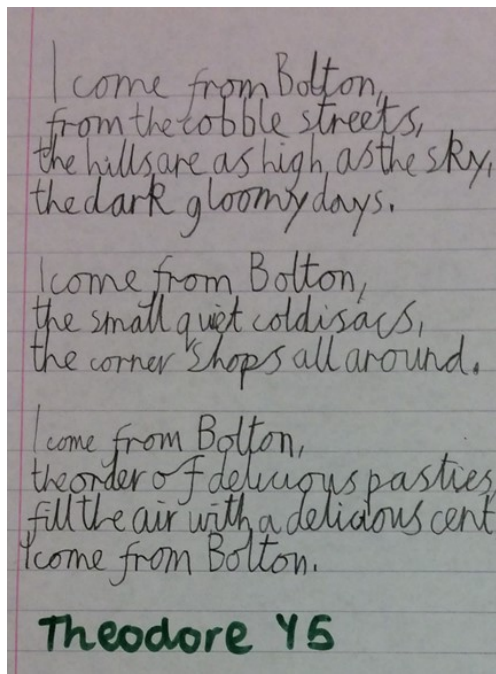 I come from Bolton,
from the cobble streets,
the hills are as high, as the sky,
the dark gloomy days.
I come from Bolton,
the small quiet coldisacs,
the corner shops all around.
I come from Bolton,
the order of delicious pasties
fill the air with a delicious cent
I come from Bolton.
Theodore Y5